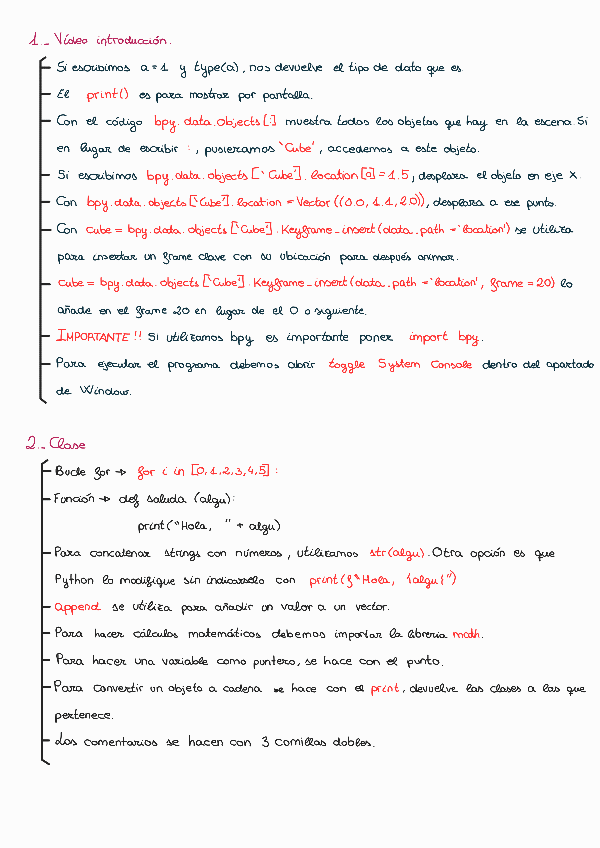 1.- Vídeo introducción.
- Si escribimos a=1 y type(a), nos devuelve el tipo de dato que es.
- El print() es para mostrar por pantalla.
- Con el código bpy.data.objects[:] muestra todos los objetos que hay en la escena. Si
en lugar de escribir :, pusieramos 'Cube', accedemos a este objeto.
- Si escribimos bpy.data.objects['Cube'].location[0]=1.5, desplaza el objeto en eje x.
- Con bpy.data.objects['Cube'].location = Vector((0.0, 1.1, 2.0)), desplaza a ese punto.
- Con cube = bpy.data.objects['Cube'].Keyframe_insert(data.path='location') se utiliza
para insertar un frame clave con su ubicación para después animar.
- cube = bpy.data.objects['Cube'].Keyframe_insert(data.path='location', frame = 20) lo
añade en el frame 20 en lugar de el 0 o siguiente.
- IMPORTANTE!! Si utilizamos bpy es importante poner import bpy.
- Para ejecutar el programa debemos abrir toggle System Console dentro del apartado
de Window.
2.- Clase
- Bucle for → for i in [0,1,2,3,4,5]:
- Función → def saluda (algu):
print("Hola, " + algu)
- Para concatenar strings con números, utilizamos str(algu). Otra opción es que
Python lo modifique sin indicarselo con print(f"Hola, {algu{")
- append se utiliza para añadir un valor a un vector.
- Para hacer cálculos matemáticos debemos importar la libreria math.
- Para hacer una variable como puntero, se hace con el punto.
- Para convertir un objeto a cadena se hace con el print, devuelve las clases a las que
pertenece.
- Los comentarios se hacen con 3 comillas dobles.